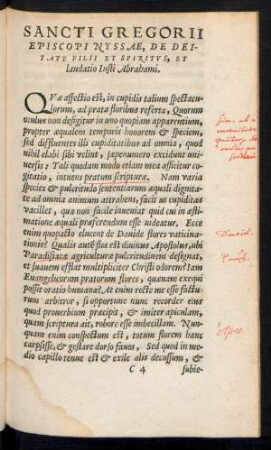 SANCTI GREGORII
EPISCOPI NYSSAE, DE DEI-
TATE FILII ET SPIRITVS, ET
laudatio Iusti Abrahami.
QVæ affectio est, in cupidis talium spectacu-
lorum, ad prata floribus referta, Quorum
oculus non defigitur in uno quopiam apparentium,
propter æqualem temporis honorem & speciem,
sed diffluentes illi cupiditatibus ad omnia, quod
nihil elabi sibi velint, sæpenumero excidunt uni-
uersis; Tali quodam modo etiam mea afficitur co-
gitatio, intuens pratum scripturæ. Nam varia
species & pulcritudo sententiarum æquali dignita-
te ad omnium attrahens, facit ut cupiditas
vacillet, qua non facile inueniat quid cui in æsti-
matione æquali præferendum esse videatur. Ecce
enim quopacto eluceat de Dauide flores vaticina-
tionis? Qualis autē suos est diuinus Apostolus, ubi
Paradisiacæ agriculturæ pulcritudinem designat,
et suauem efflat multipliciter Christi odorem? Iam
Euangelicorum pratorum flores, quanam exequi
posset oratio humana? At enim recte me esse factu-
rum arbitror, si opportune nunc recorder eius
quod prouerbium præcipit, & imiter apiculam,
quam scriptura ait, robore esse imbecillem. Nun-
quam enim conspectum est, totum florem hanc
carpsisse, & gestare dorso suo, Sed quod in me-
dio capillo tenue est & exile alis decussum, &
C 4 subie-
Dauid.
Apes.